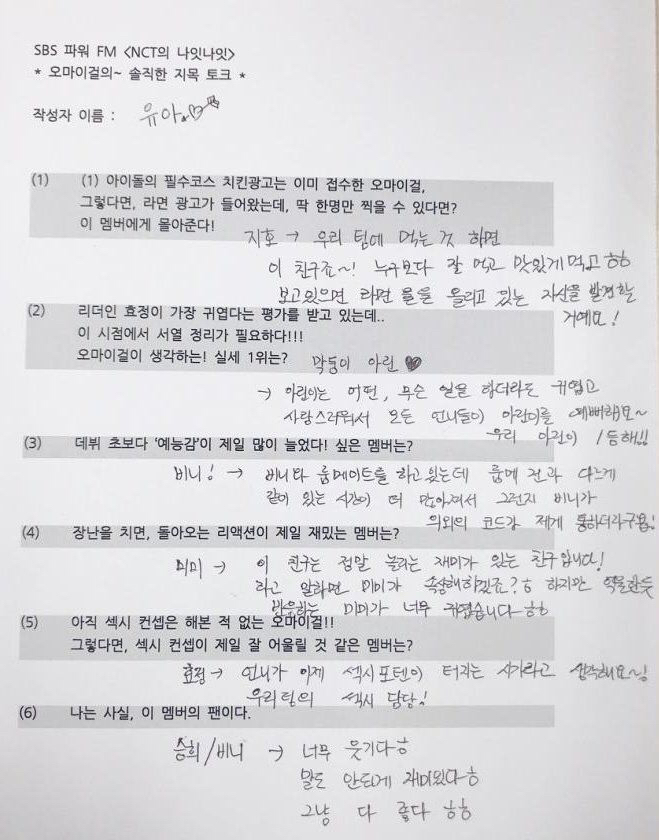 SBS 파워 FM <NCT의 나잇나잇>
* 오마이걸의~ 솔직한 지목 토크 *
작성자 이름 : 유아
(1) (1) 아이돌의 필수코스 치킨광고는 이미 접수한 오마이걸,
그렇다면, 라면 광고가 들어왔는데, 딱 한명만 찍을 수 있다면?
이 멤버에게 몰아준다!
지호 → 우리 팀에 먹는 것 하면
이 친구죠~! 누구보다 잘 먹고 맛있게 먹고 ㅎㅎ
보고있으면 라면 물을 올리고 있는 자신을 발견할
거예요!
(2) 리더인 효정이 가장 귀엽다는 평가를 받고 있는데..
이 시점에서 서열 정리가 필요하다!!!
오마이걸이 생각하는! 실세 1위는? 막둥이 아린 ♥
→ 아린이는 어떤, 무슨 일을 하더라도 귀엽고
사랑스러워서 모든 언니들이 아린이를 예뻐해요~
우리 아린이 1등해!!
(3) 데뷔 초보다 '예능감'이 제일 많이 늘었다! 싶은 멤버는?
비니! → 비니와 룸메이트를 하고 있는데 룸메 전과 다르게
같이 있는 시간이 더 많아져서 그런지 비니가
의외의 코드가 제게 통하더라구용!
(4) 장난을 치면, 돌아오는 리액션이 제일 재밌는 멤버는?
미미 → 이 친구는 정말 놀리는 재미가 있는 친구입니다!
라고 말하면 미미가 속상해하겠죠?ㅎ 하지만 억울한듯
반응하는 미미가 너무 귀엽습니다 ㅎㅎ
(5) 아직 섹시 컨셉은 해본 적 없는 오마이걸!!
그렇다면, 섹시 컨셉이 제일 잘 어울릴 것 같은 멤버는?
효정 → 언니가 이제 섹시포텐이 터지는 시기라고 생각해요~!
우리팀의 섹시 담당!
(6) 나는 사실, 이 멤버의 팬이다.
승희/비니 → 너무 웃기다ㅎ
말도 안되게 재미있다ㅎ
그냥 다 좋다 ㅎㅎ